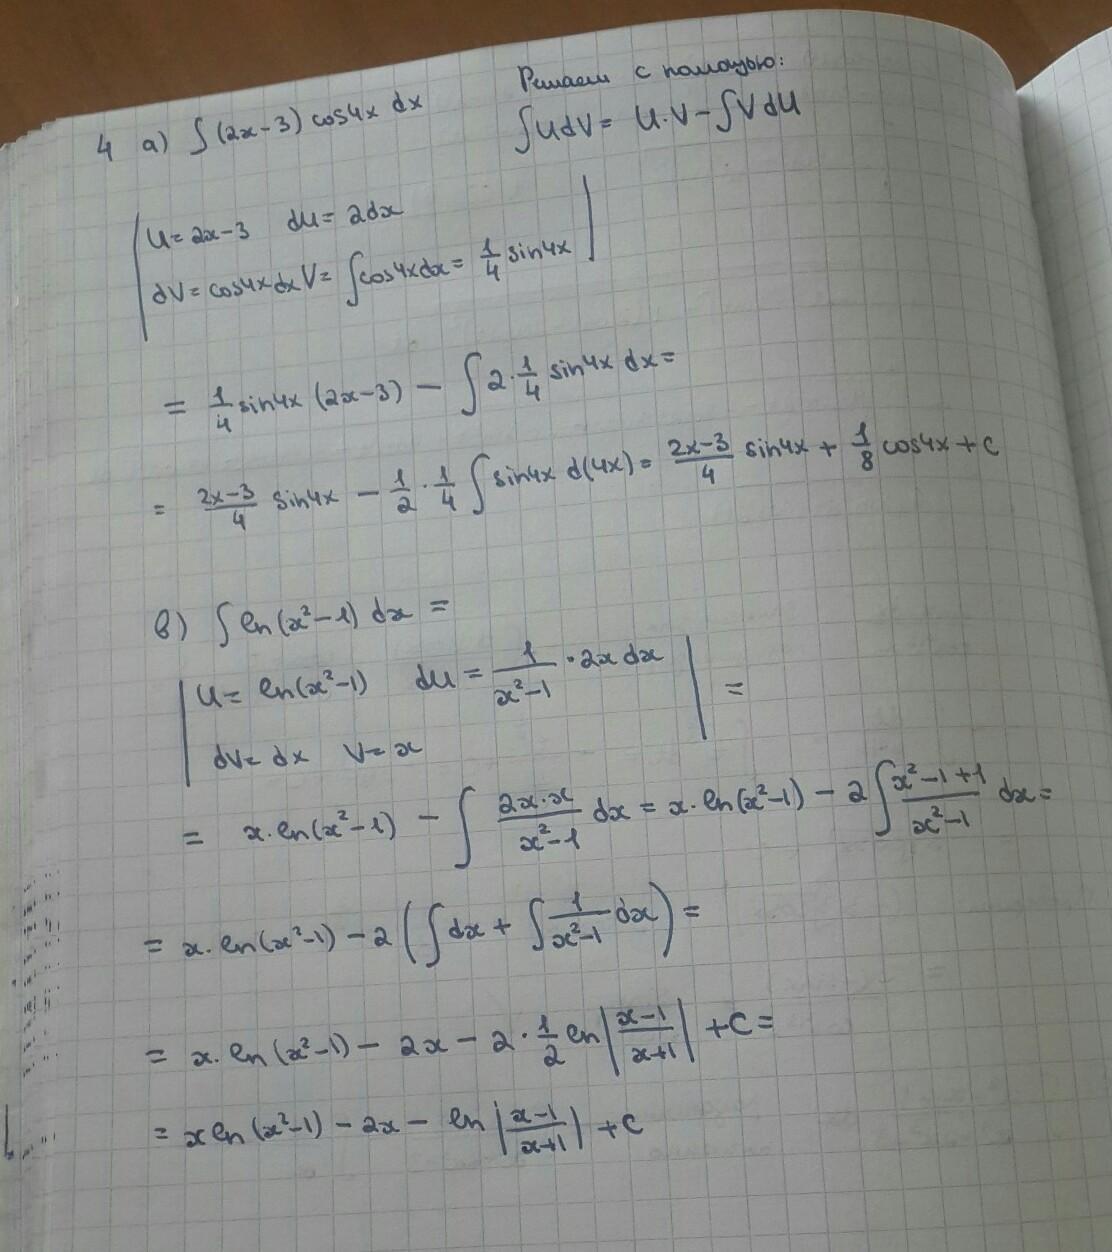 4 а) ∫(2x-3) cos4x dx
Решаем с помощью:
∫UdV = U·V-∫VdU
U=2x-3 dU=2dx
dV=cos4xdx V=∫cos4xdx=1/4 sin4x
= 1/4 sin4x (2x-3) - ∫2·1/4 sin4x dx=
= (2x-3)/4 sin4x - 1/2·1/4 ∫sin4x d(4x)= (2x-3)/4 sin4x + 1/8 cos4x+c
в) ∫ln(x²-1) dx =
U= ln(x²-1) dU= 1/(x²-1)·2x dx =
dV= dx V=x
= x·ln(x²-1) - ∫ (2x·x)/(x²-1) dx = x·ln(x²-1) - 2∫(x²-1+1)/(x²-1) dx=
= x·ln(x²-1) -2(∫dx + ∫1/(x²-1) dx)=
= x·ln(x²-1) - 2x - 2·1/2 ln|(x-1)/(x+1)| +C=
= xln(x²-1) - 2x - ln|(x-1)/(x+1)| +C